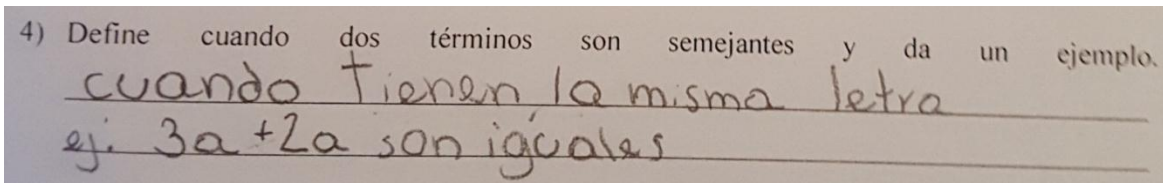 4) Define cuando dos términos son semejantes y da un ejemplo.
cuando Tienen la misma letra
ej. 3a+2a son iguales